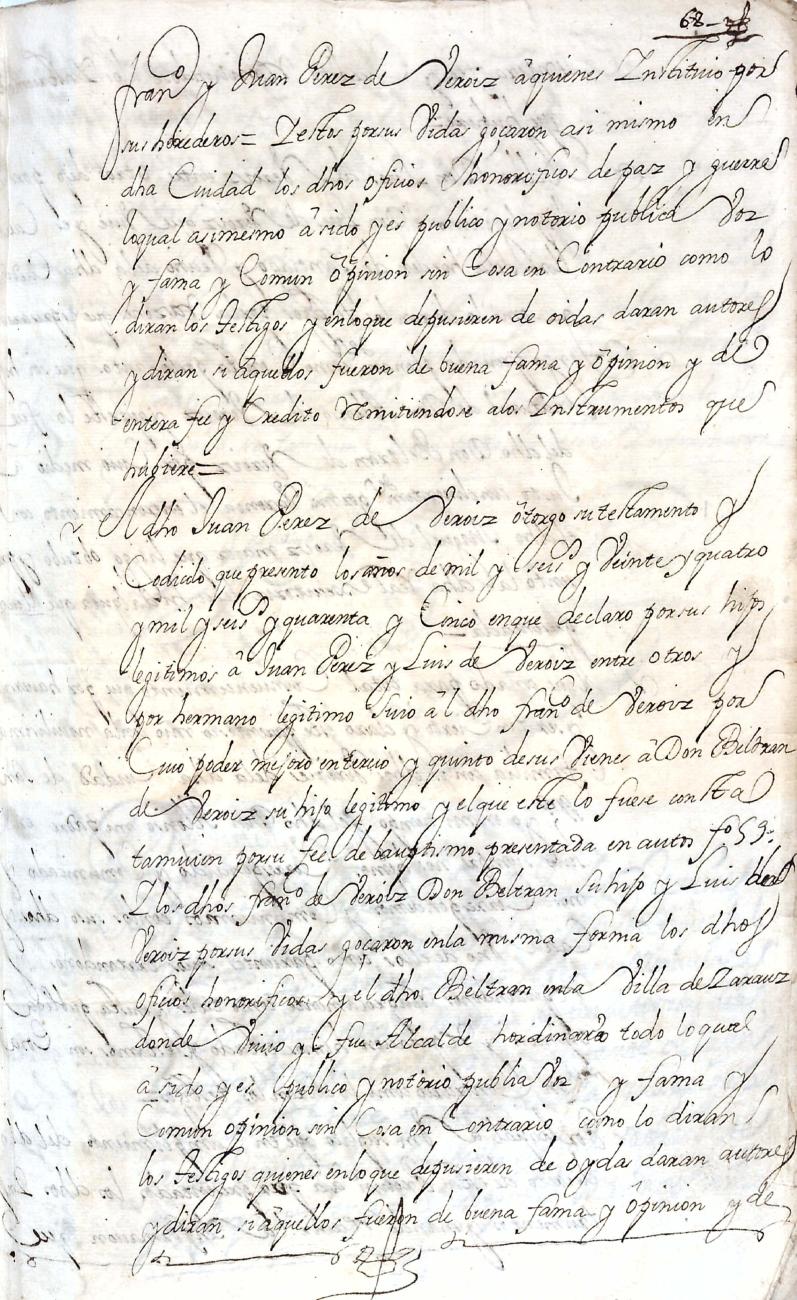 68
fran.º y Juan Perez de Veroiz âquienes Instituio por
sus herederos = Y estos por sus Vidas goçaron asi mismo en
dha Ciudad los dhos oficios honorificos de paz y guerra
loqual asimesmo â sido y es publico y notorio publica Voz
y fama y Comun ôpinion sin Cosa en Contrario como lo
diran los testigos y enloque depusieren de oidas daran autores
y diran si âquellos fueron de buena fama y ôpinion y de
entera fee y Credito Remitiendose alos Instrumentos que
hubiere =
El dho Juan Perez de Veroiz ôtorgo su testamento y
Codicilo que presento los años de mil y seisº y Veinte y quatro
y mil y seisº y quarenta y Cinco enque declaro por sus hijos
legitimos â Juan Perez y Luis de Veroiz entre otros y
por hermano legitimo suio âl dho franco de Veroiz por
Cuio poder mejoro entercio y quinto desus Vienes â Don Beltran
de Veroiz su hijo legitimo y el que este lo fuese consta
tamvien porsu fee de bauptismo presentada en autos fº 59.
Y los dhos franº de Veroiz Don Beltran su hijo y Luis de
Veroiz porsus Vidas goçaron enla misma forma los dhos
oficios honorificos y el dho Beltran enla Villa de Zarauz
donde Vivio y fue Alcalde hordinario todo loqual
â sido y es publico y notorio publica Voz y fama y
Comun opinion sin Cosa en Contrario como lo diran
los testigos quienes enloque depusieren de oydas daran autores
y diran si âquellos fueron de buena fama y ôpinion y de